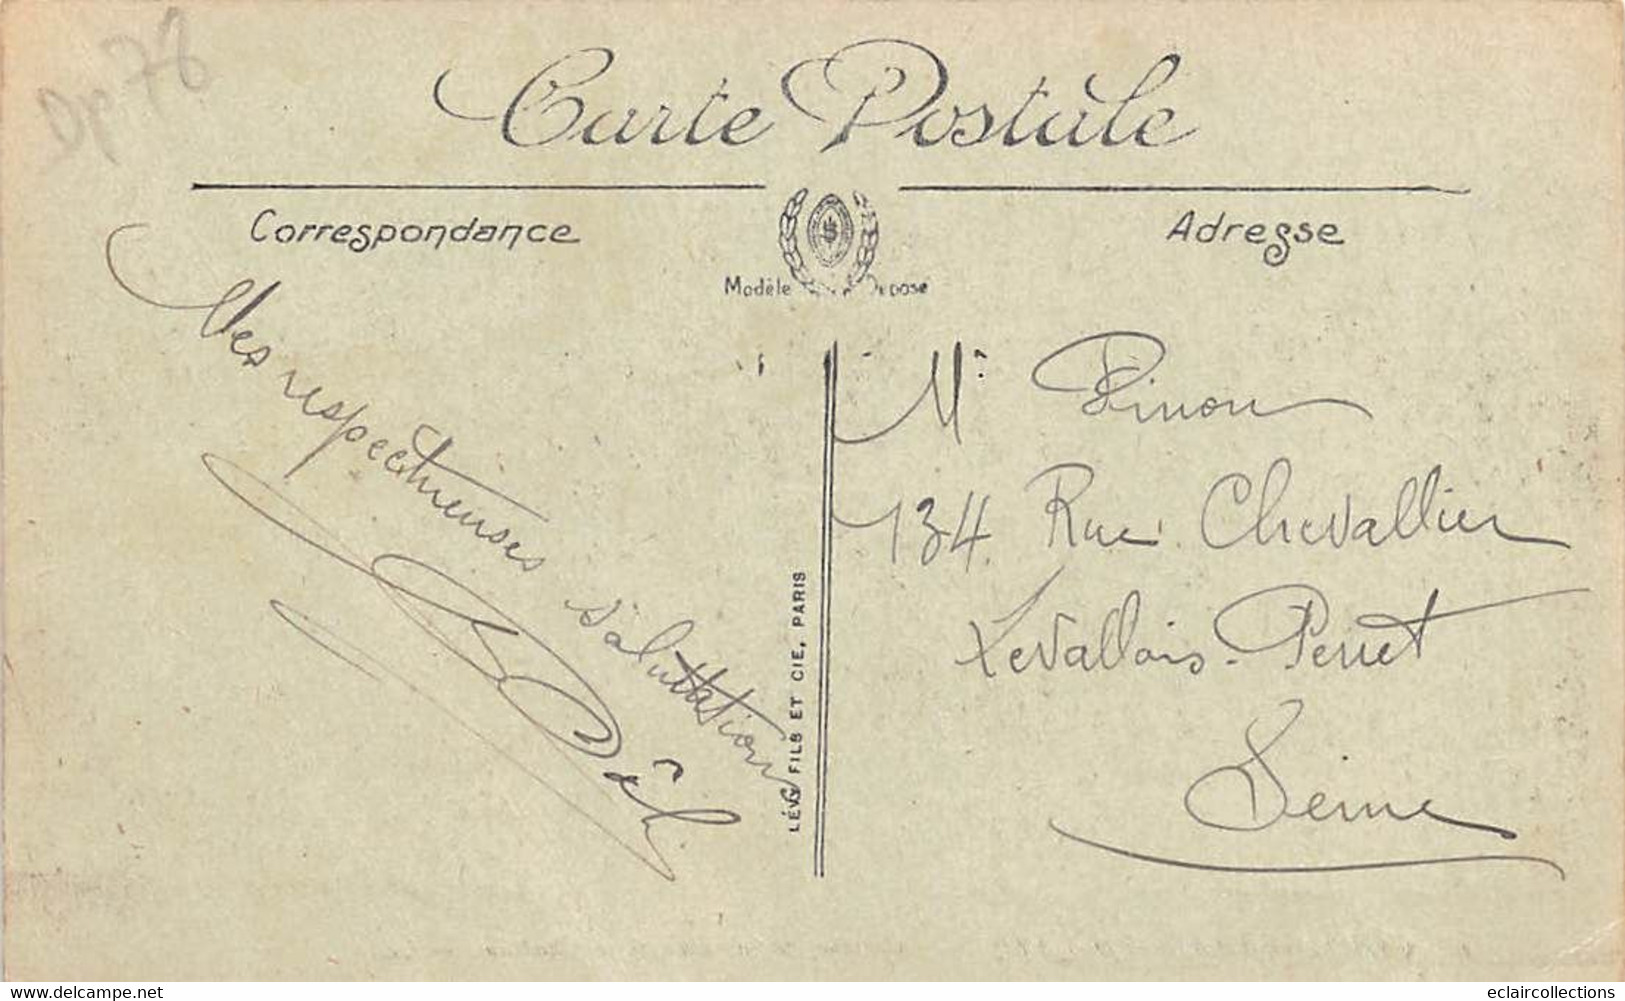 Dp 78
Carte Postale
Correspondance
Adresse
Modèle Déposé
Mes respectueuses
salutations
LÉVY FILS ET CIE, PARIS
Mr Pinon
134. Rue Chevallier
Levallois-Perret
Seine
delcampe.net
eclaircollections